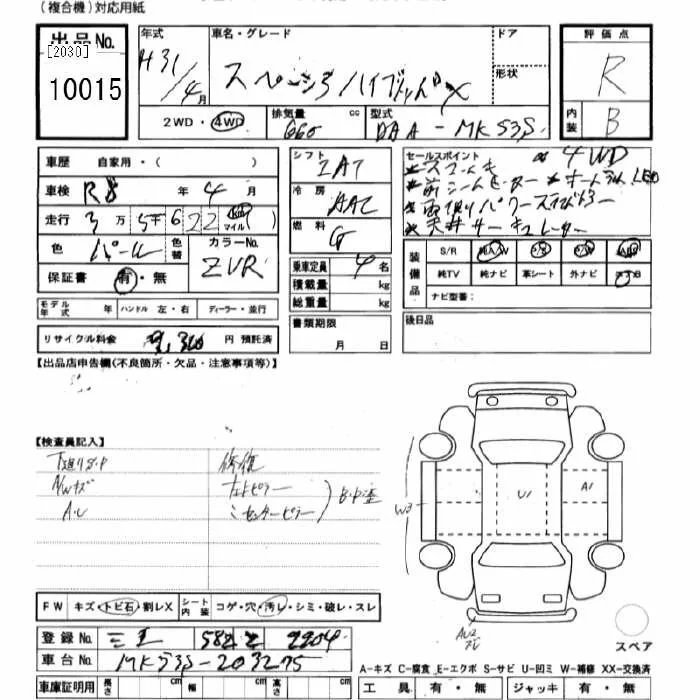 (複合機)対応用紙
出品No.
[2030]
10015
年式
H31/4月
車名・グレード
スペーシアハイブリッドX
ドア
形状
評価点
R
内装
B
2WD・4WD
排気量 cc
660
型式
DAA-MK53S
車歴 自家用・( )
車検 R8年4月
走行 3万5千622 km マイル
色 パール
色替
カラーNo. ZVR
保証書 有・無
モデル年式 年 ハンドル 左・右 ディーラー・並行
リサイクル料金 円 預託済
シフト IAT
冷房 AAC
燃料 G
乗車定員 4名
積載量 kg
総重量 kg
書類期限
月 日
セールスポイント 4WD
★スマートキー
★前シートヒーター ★オートライト LED
★両側パワースライドドア
★天井サーキュレーター
装備品
S/R 純A/W P/S P/W ABS
純TV 純ナビ 革シート 外ナビ エアB
ナビ型番:
後日品
【出品店申告欄(不良箇所・欠品・注意事項等)】
【検査員記入】
下廻りサビ 修復
AWキズ 左Fピラー
A・U 〃センターピラー
W3
U1
A1
AU2
FW キズ・トビ石・割レX
シート内装 コゲ・穴・汚レ・シミ・破レ・スレ
登録No. 三重 582 そ 2204
車台No. MK53S-203275
スペア
A-キズ C-腐食 E-エクボ S-サビ U-凹ミ W-補修 XX-交換済
車庫証明用 長さ cm 幅 cm 高さ cm
工具 有・無 ジャッキ 有・無